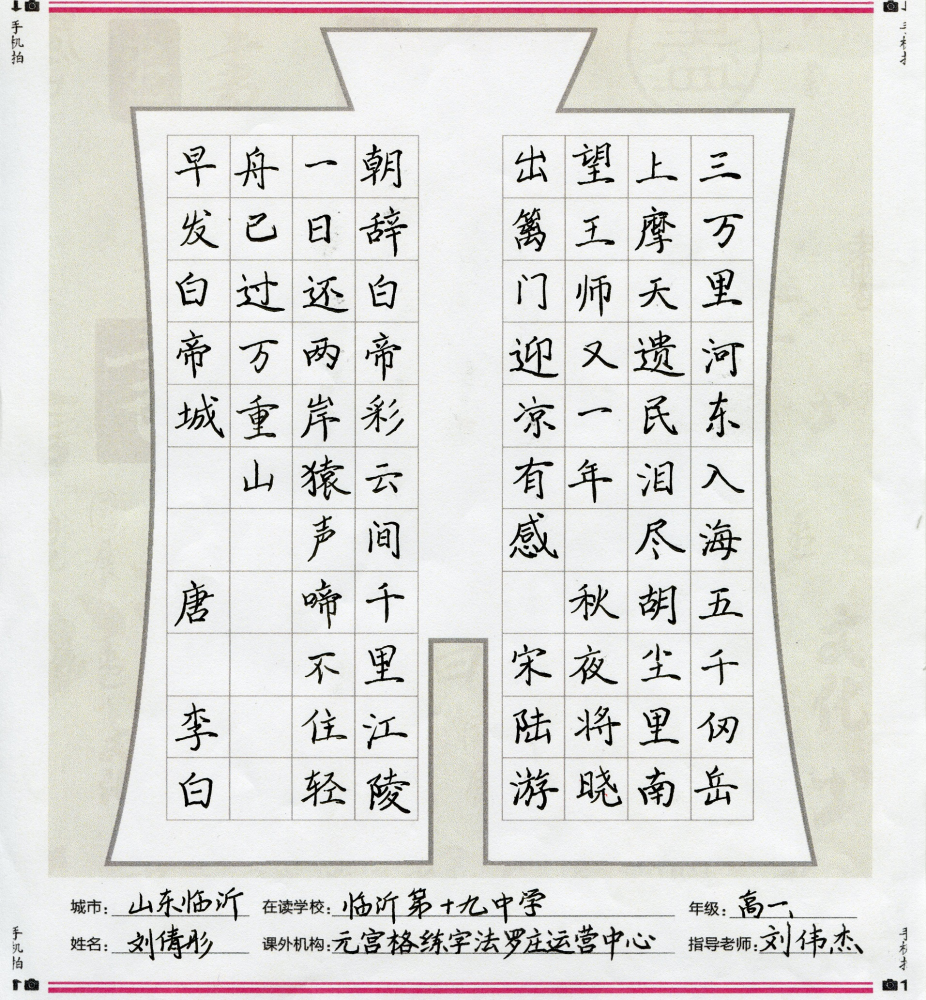 手机拍
手机拍
三万里河东入海五千仞岳
上摩天遗民泪尽胡尘里南
望王师又一年 秋夜将晓
出篱门迎凉有感 宋陆游
朝辞白帝彩云间千里江陵
一日还两岸猿声啼不住轻
舟已过万重山
早发白帝城 唐 李白
城市：山东临沂 在读学校：临沂第十九中学 年级：高一
姓名：刘倩彤 课外机构：元宫格练字法罗庄运营中心 指导老师：刘伟杰
手机拍
手机拍